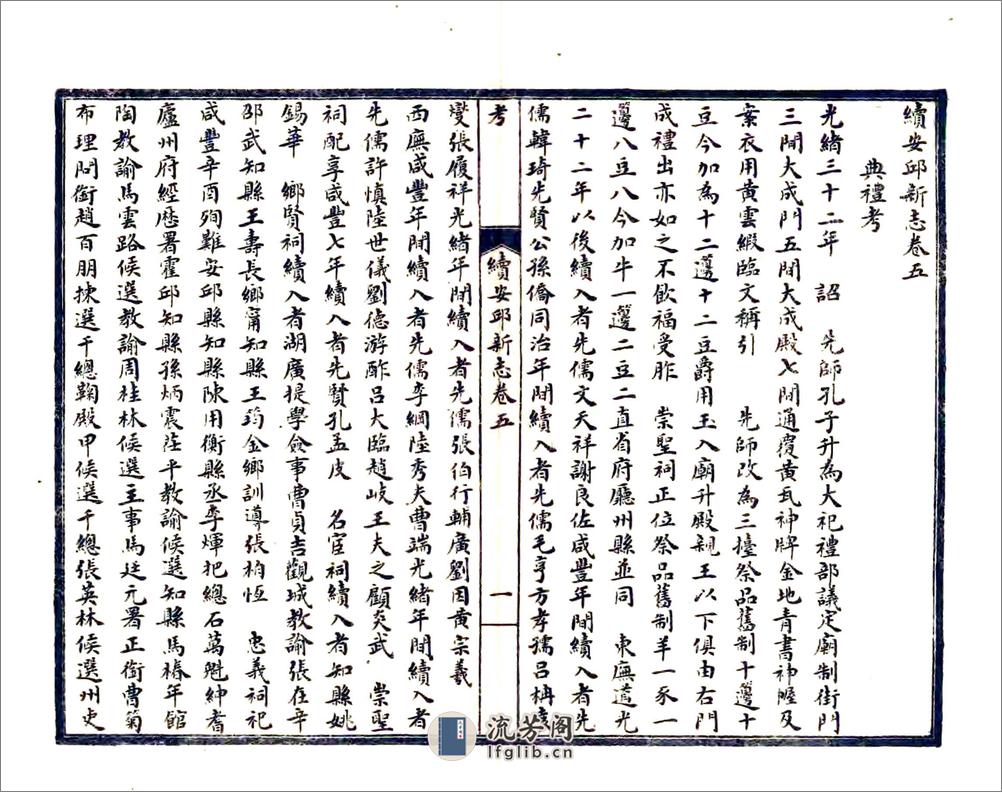 續安邱新志卷五
典禮考
光緒三十二年 詔 先師孔子升為大祀禮部議定廟制街門
三間大成門五間大成殿七間通覆黃瓦神牌金地青書神幄及
案衣用黃雲緞臨文稱引 先師改為三擡祭品舊制十籩十
豆今加為十二籩十二豆爵用玉入廟升殿親王以下俱由右門
成禮出亦如之不飲福受胙 崇聖祠正位祭品舊制羊一豕一
籩八豆八今加牛一籩二豆二直省府廳州縣並同 東廡道光
二十二年以後續入者先儒文天祥謝良佐咸豐年間續入者先
儒韓琦先賢公孫僑同治年間續入者先儒毛亨方孝孺呂柟袁
考
續安邱新志卷五
一
燮張履祥光緒年間續入者先儒張伯行輔廣劉因黃宗羲
西廡咸豐年間續入者先儒李綱陸秀夫曹端光緒年間續入者
先儒許慎陸世儀劉德游酢呂大臨趙岐王夫之顧炎武 崇聖
祠配享咸豐七年續入者先賢孔孟皮 名宦祠續入者知縣姚
錫華 鄉賢祠續入者湖廣提學僉事曹貞吉觀城教諭張在辛
邵武知縣王壽長鄉甯知縣王筠金鄉訓導張柏恆 忠義祠祀
咸豐辛酉殉難安邱縣知縣陳用衡縣丞李煇把總石萬魁紳耆
廬州府經歷署霍邱知縣孫炳震茌平教諭候選知縣馬椿年館
陶教諭馬雲路候選教諭周桂林候選主事馬廷元署正銜曹菊
布理問銜趙百朋揀選千總鞠殿甲候選千總張英林候選州吏
流芳阁
lfglib.cn